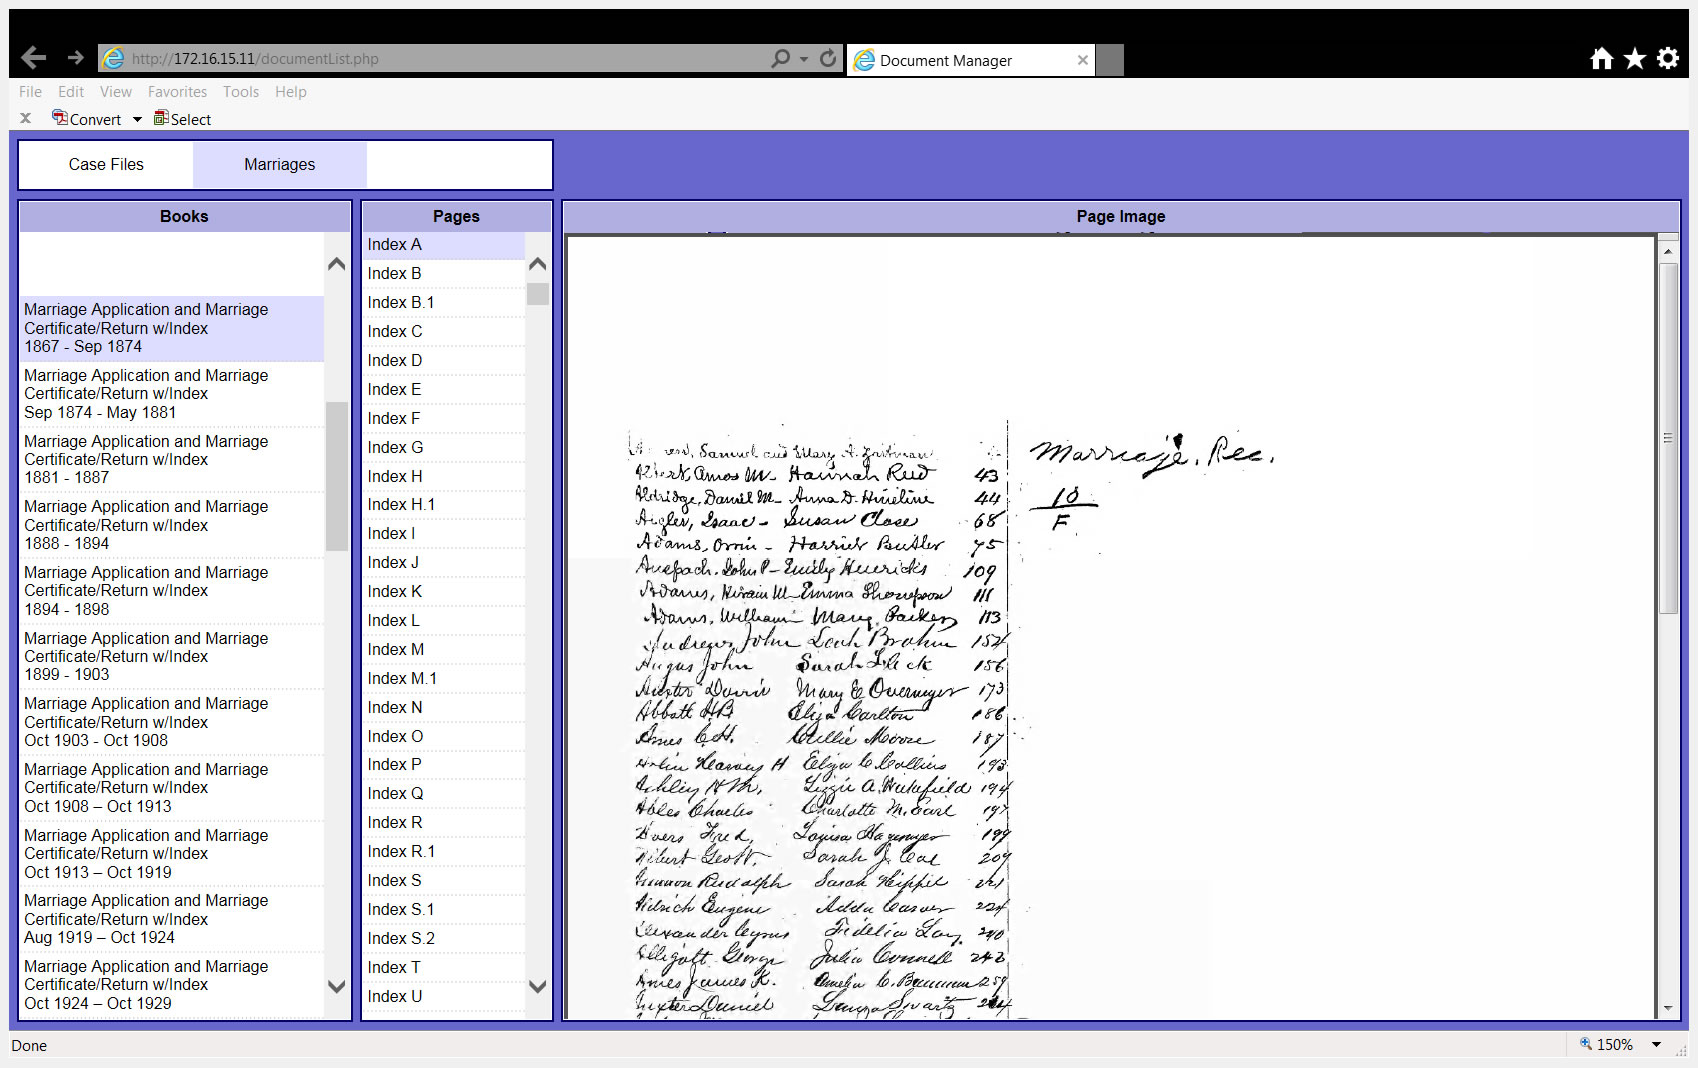 http://172.16.15.11/documentList.php
Document Manager
File Edit View Favorites Tools Help
x Convert Select
Case Files Marriages
Books
Marriage Application and Marriage
Certificate/Return w/Index
1867 - Sep 1874
Marriage Application and Marriage
Certificate/Return w/Index
Sep 1874 - May 1881
Marriage Application and Marriage
Certificate/Return w/Index
1881 - 1887
Marriage Application and Marriage
Certificate/Return w/Index
1888 - 1894
Marriage Application and Marriage
Certificate/Return w/Index
1894 - 1898
Marriage Application and Marriage
Certificate/Return w/Index
1899 - 1903
Marriage Application and Marriage
Certificate/Return w/Index
Oct 1903 - Oct 1908
Marriage Application and Marriage
Certificate/Return w/Index
Oct 1908 – Oct 1913
Marriage Application and Marriage
Certificate/Return w/Index
Oct 1913 – Oct 1919
Marriage Application and Marriage
Certificate/Return w/Index
Aug 1919 – Oct 1924
Marriage Application and Marriage
Certificate/Return w/Index
Oct 1924 – Oct 1929
Pages
Index A
Index B
Index B.1
Index C
Index D
Index E
Index F
Index G
Index H
Index H.1
Index I
Index J
Index K
Index L
Index M
Index M.1
Index N
Index O
Index P
Index Q
Index R
Index R.1
Index S
Index S.1
Index S.2
Index T
Index U
Page Image
Samuel and Mary A.
Albert, Amos M - Hannah Reed 43
Aldridge, Daniel M - Anna D. Hineline 44
Aigler, Isaac - Susan Close 68
Adams, Orrin - Harriet Butler 95
Auspach. John P - Emily Henricks 109
Adams, Hiram M - Emma Thompson 111
Adams, William Mary Parker 113
Andrews, John Leah Brahm 154
Angus John Sarah Fleck 156
Mary E Overmyer 173
Abbott H.B. Eliza Carlton 186
Ames C.H. Callie Moore 187
Harvey H Eliza C. Collins 193
Ashley H M. Lizzie A. Wakefield 194
Ables Charles Charlotte M. Earl 197
Fred. Louisa Hagemyer 199
Albert Geo W. Sarah J. Cae 209
Ammon Rudolph Sarah Hippel 221
Aldrich Eugene Adda Carver 224
Alexander Cyrus Fidelia Lay. 240
Elligott George Julia Connell 243
Ames James K. Amelia C. Bauman 259
Daniel Swartz 264
Marriage. Rec.
10
F
Done
150%